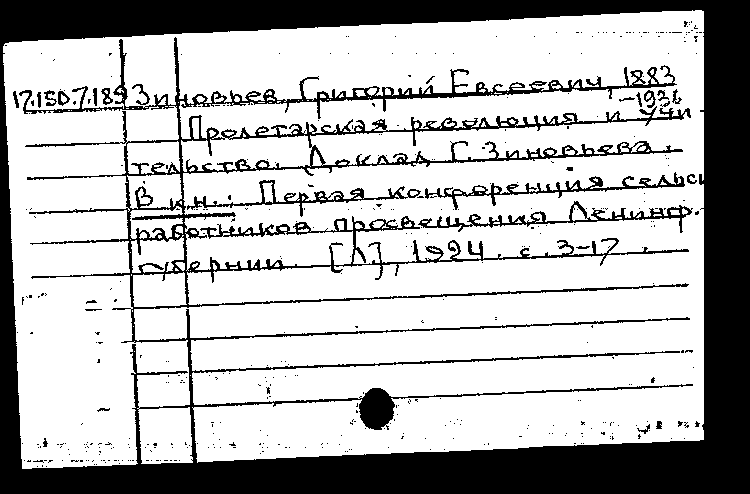 17.150.7.189 Зиновьев, Григорий Евсеевич, 1883
-1936
Пролетарская революция и учи-
тельство. Доклад Г. Зиновьева.
В кн.: Первая конференция сельск
работников просвещения Ленингр.
губернии. [Л.], 1924. с. 3-17.